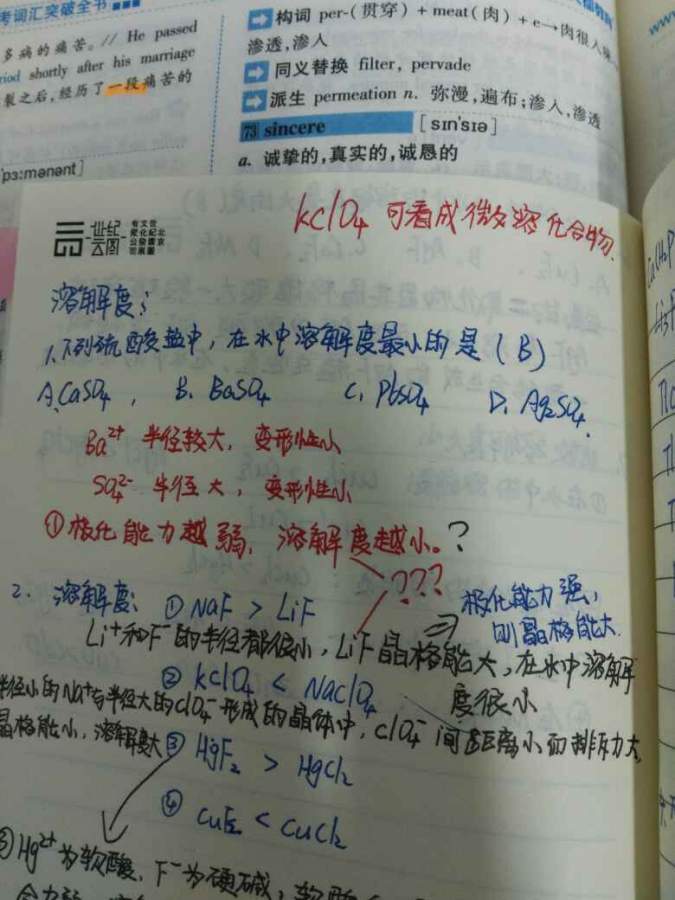 考词汇突破全书
多病的痛苦。// He passed
riod shortly after his marriage
裂之后,经历了一段痛苦的
'pɜːmənənt]
构词 per-(贯穿) + meat(肉) + e→肉很入味
渗透,渗入
同义替换 filter, pervade
派生 permeation n. 弥漫,遍布;渗入,渗透
73 sincere [sɪn'sɪə]
a. 诚挚的,真实的,诚恳的
世纪
云图
KClO4 可看成微溶化合物.
溶解度:
1.下列硫酸盐中,在水中溶解度最小的是(B)
A.CaSO4, B. BaSO4 C. PbSO4 D. Ag2SO4.
Ba2+ 半径较大,变形性小
SO42- 半径大,变形性小
①极化能力越弱,溶解度越小。?
???
2. 溶解度: ① NaF > LiF
极化能力强,
则晶格能大.
Li+和F-的半径都很小,LiF晶格能大,在水中溶解
度很小
② KClO4 < NaClO4
半径小的Na+与半径大的ClO4-形成的晶体中,ClO4-间距离小而排斥力大,
晶格能小,溶解度大
③ HgF2 > HgCl2
④ CuF2 < CuCl2
③Hg2+为软酸,F-为硬碱,